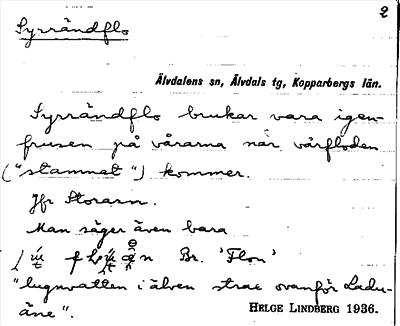 2
Syrrändflo
Älvdalens sn, Älvdals tg, Kopparbergs län.
Syrrändflo brukar vara igen-
frusen på vårarna när vårfloden
("stammat") kommer.
Jfr Storarn.
Man säger även bara
Br. 'Flon'
"lugnvatten i älven strax ovanför Ladu-
äne".
HELGE LINDBERG 1936.